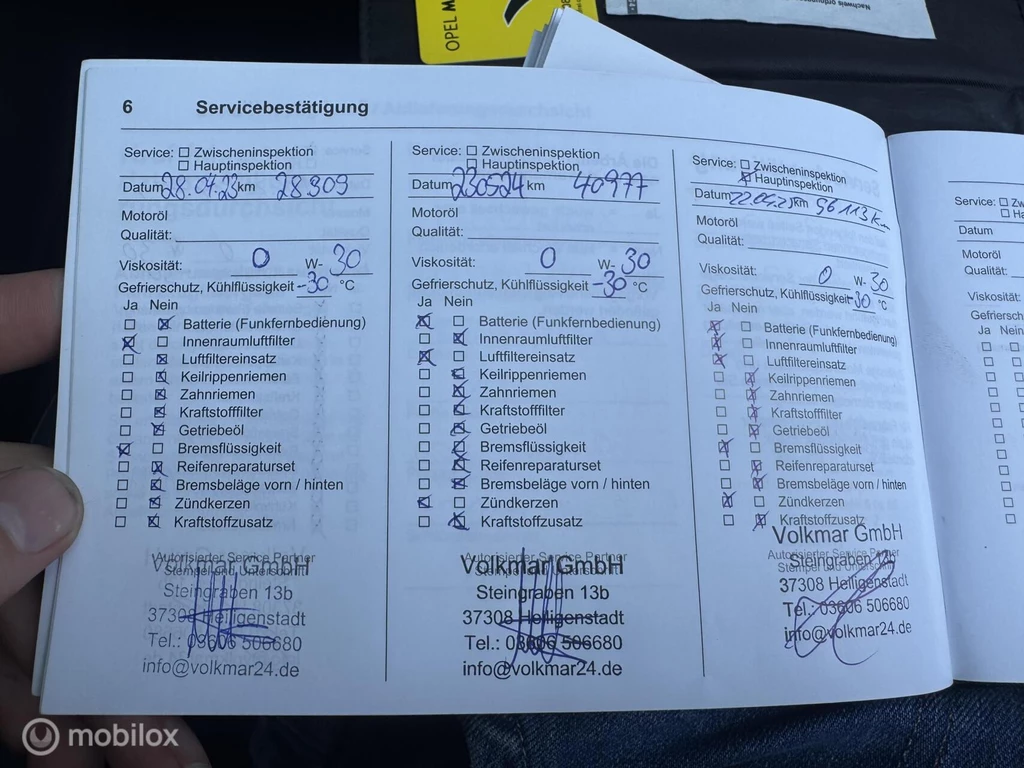 OPEL M
6 Servicebestätigung
Service: ☐ Zwischeninspektion
☐ Hauptinspektion
Datum 28.04.23 km 28309
Motoröl
Qualität:
Viskosität: 0 W- 30
Gefrierschutz, Kühlflüssigkeit -30 °C
Ja Nein
☐ ☒ Batterie (Funkfernbedienung)
☒ ☐ Innenraumluftfilter
☐ ☒ Luftfiltereinsatz
☐ ☒ Keilrippenriemen
☐ ☒ Zahnriemen
☐ ☒ Kraftstofffilter
☐ ☒ Getriebeöl
☒ ☐ Bremsflüssigkeit
☐ ☒ Reifenreparaturset
☐ ☒ Bremsbeläge vorn / hinten
☐ ☒ Zündkerzen
☐ ☒ Kraftstoffzusatz
Autorisierter Service Partner
Stempel und Unterschrift
Volkmar GmbH
Steingraben 13b
37308 Heiligenstadt
Tel.: 03606 506680
info@volkmar24.de
Service: ☐ Zwischeninspektion
☐ Hauptinspektion
Datum 230524 km 40977
Motoröl
Qualität:
Viskosität: 0 W- 30
Gefrierschutz, Kühlflüssigkeit -30 °C
Ja Nein
☒ ☐ Batterie (Funkfernbedienung)
☐ ☒ Innenraumluftfilter
☒ ☐ Luftfiltereinsatz
☐ ☒ Keilrippenriemen
☐ ☒ Zahnriemen
☐ ☒ Kraftstofffilter
☐ ☒ Getriebeöl
☐ ☒ Bremsflüssigkeit
☐ ☒ Reifenreparaturset
☐ ☒ Bremsbeläge vorn / hinten
☒ ☐ Zündkerzen
☐ ☒ Kraftstoffzusatz
Autorisierter Service Partner
Stempel und Unterschrift
Volkmar GmbH
Steingraben 13b
37308 Heiligenstadt
Tel.: 03606 506680
info@volkmar24.de
Service: ☐ Zwischeninspektion
☒ Hauptinspektion
Datum km
Motoröl
Qualität:
Viskosität: 0 W- 30
Gefrierschutz, Kühlflüssigkeit -30 °C
Ja Nein
☒ ☐ Batterie (Funkfernbedienung)
☒ ☐ Innenraumluftfilter
☒ ☐ Luftfiltereinsatz
☐ ☒ Keilrippenriemen
☐ ☒ Zahnriemen
☐ ☒ Kraftstofffilter
☐ ☒ Getriebeöl
☒ ☐ Bremsflüssigkeit
☐ ☒ Reifenreparaturset
☐ ☒ Bremsbeläge vorn / hinten
☒ ☐ Zündkerzen
☐ ☒ Kraftstoffzusatz
Autorisierter Service Partner
Stempel und Unterschrift
Volkmar GmbH
Steingraben 13b
37308 Heiligenstadt
Tel.: 03606 506680
info@volkmar24.de
Service: ☐ Zw
☐ Ha
Datum
Motoröl
Qualität:
Viskosität:
Gefriersch
Ja Nein
mobilox